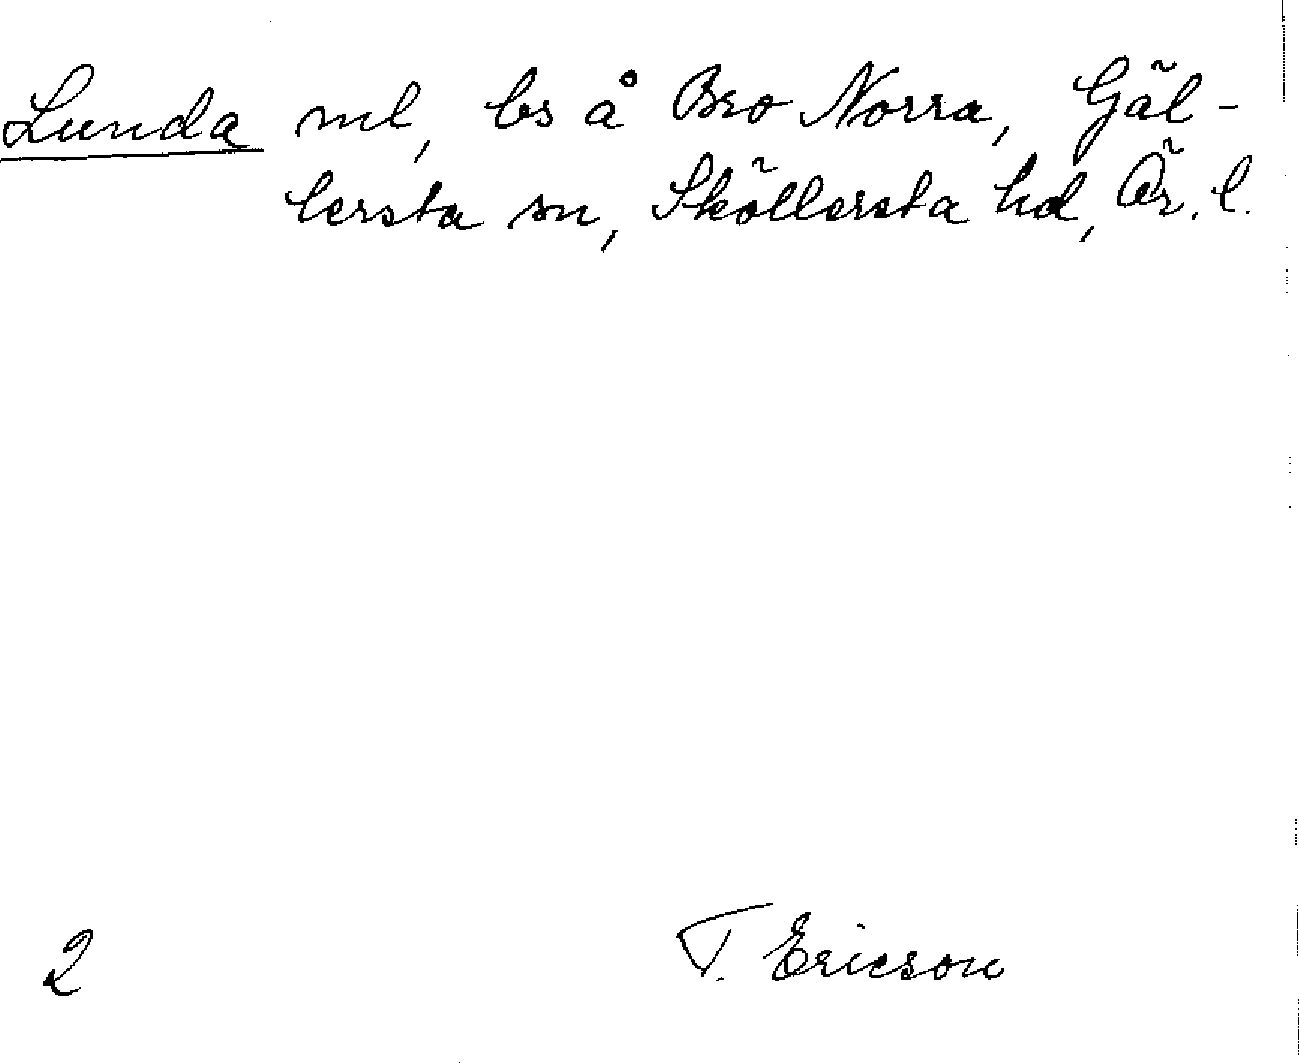 Lunda ml, bs å Bro Norra, Gäl-
lersta sn, Sköllersta hd, Ör. l.
2
T. Ericson